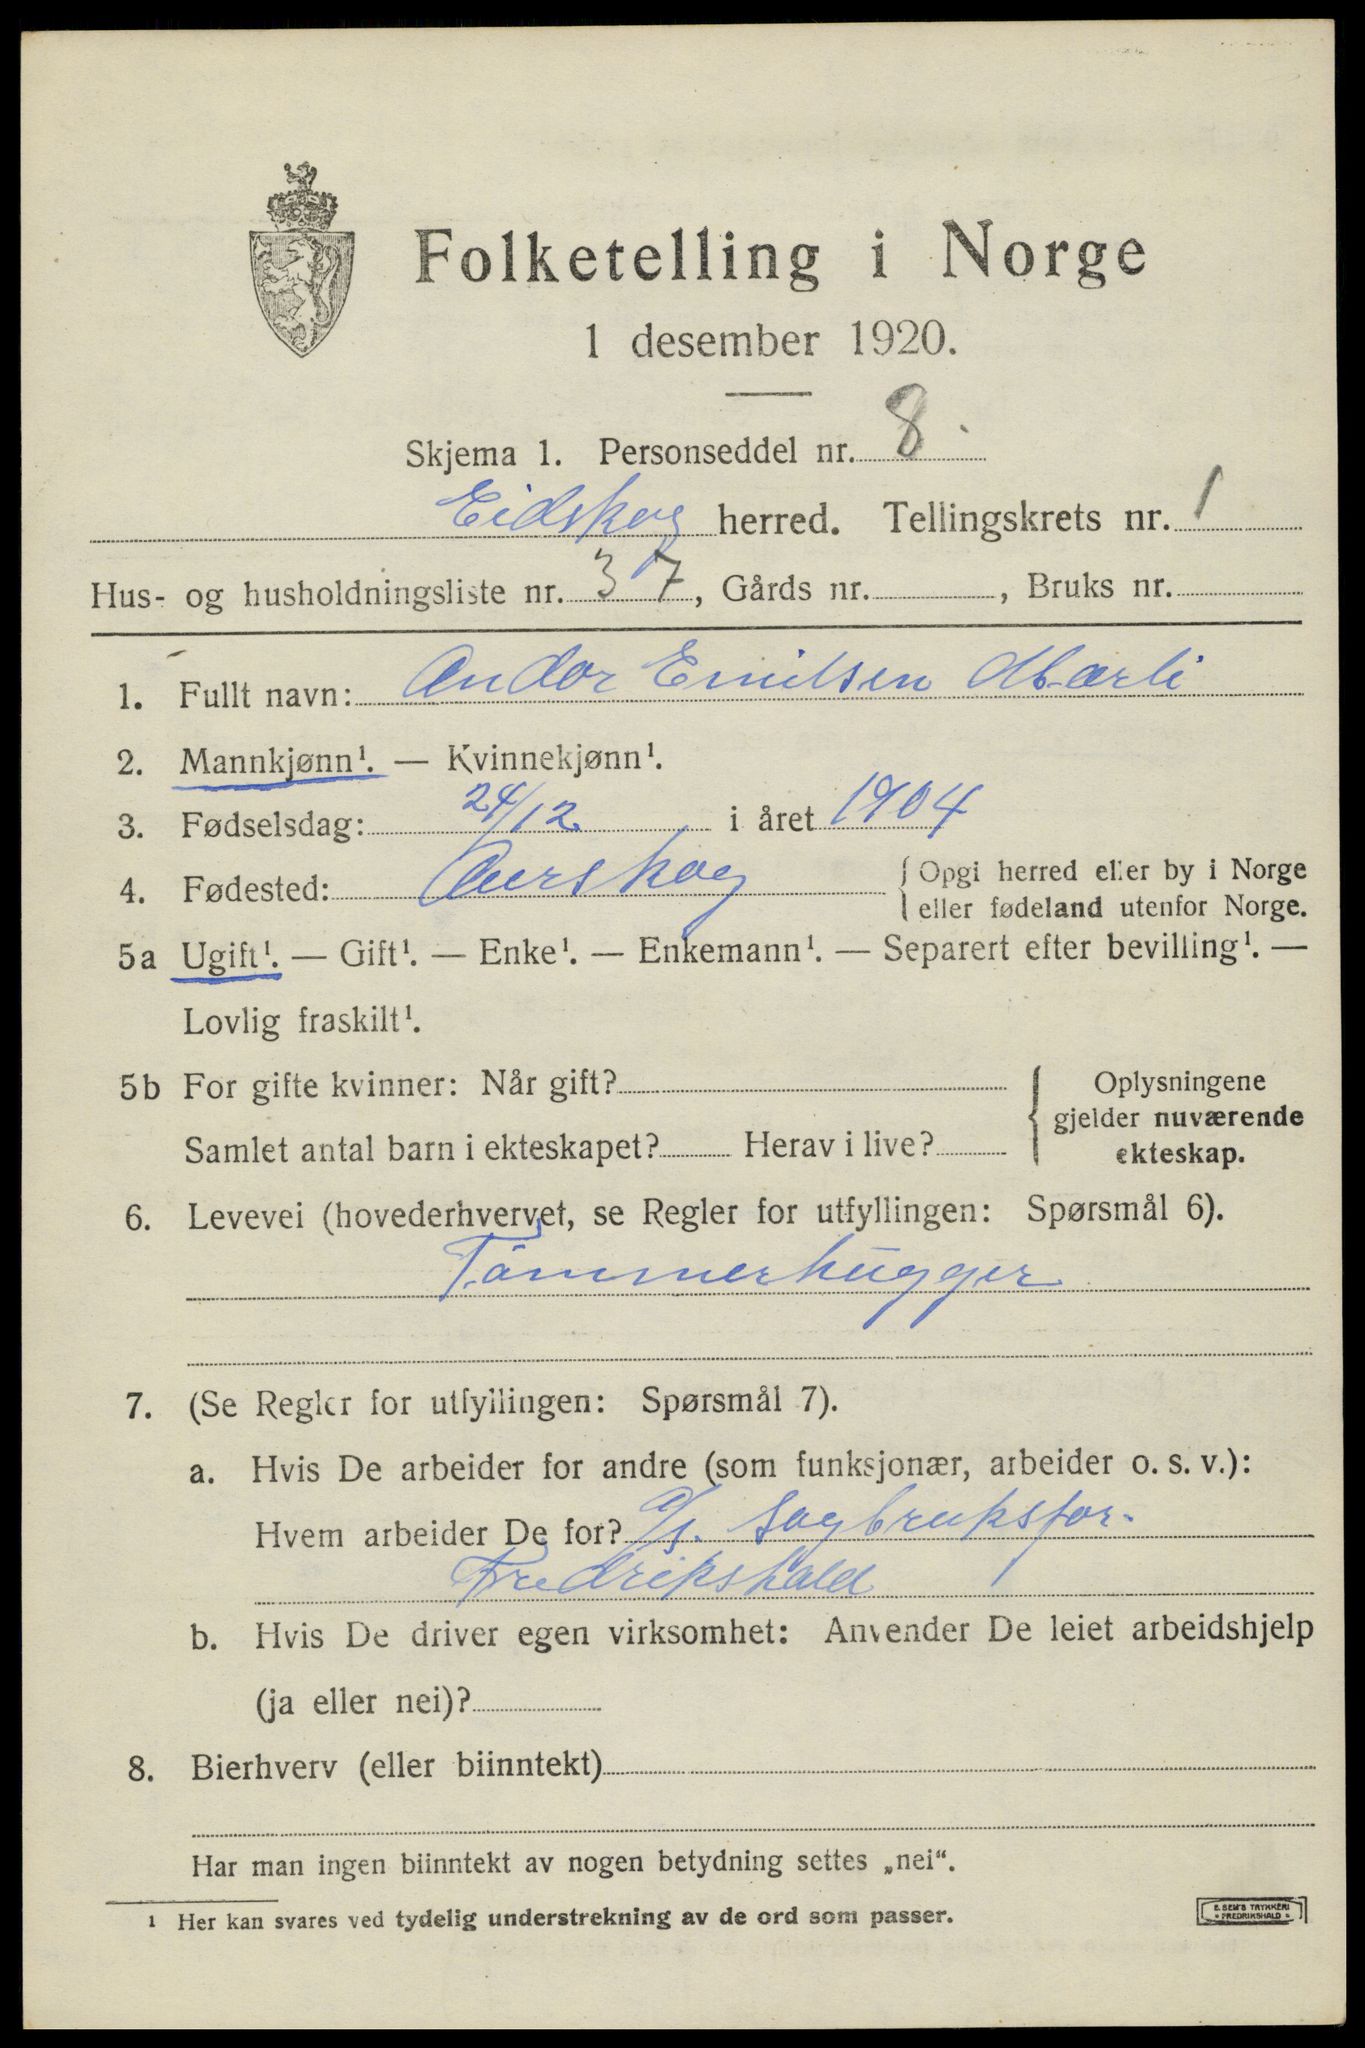 Folketelling i Norge
1 desember 1920.
Skjema 1. Personseddel nr. 8.
Eidskog herred. Tellingskrets nr. 1
Hus- og husholdningsliste nr. 37, Gårds nr. , Bruks nr.
1. Fullt navn: Andor Emilsen Mærli
2. Mannkjønn¹. — Kvinnekjønn¹.
3. Fødselsdag: 24/12 i året 1904
4. Fødested: Aurskog { Opgi herred eller by i Norge
eller fødeland utenfor Norge.
5a Ugift¹. — Gift¹. — Enke¹. — Enkemann¹. — Separert efter bevilling¹. —
Lovlig fraskilt¹.
5b For gifte kvinner: Når gift? { Oplysningene
gjelder nuværende
Samlet antal barn i ekteskapet? Herav i live? ekteskap.
6. Levevei (hovederhvervet, se Regler for utfyllingen: Spørsmål 6).
Tømmerhugger
7. (Se Regler for utfyllingen: Spørsmål 7).
a. Hvis De arbeider for andre (som funksjonær, arbeider o. s. v.):
Hvem arbeider De for? A/S. Sagbruksfor.
Fredrikshald
b. Hvis De driver egen virksomhet: Anvender De leiet arbeidshjelp
(ja eller nei)?
8. Bierhverv (eller biinntekt)
Har man ingen biinntekt av nogen betydning settes „nei“.
¹ Her kan svares ved tydelig understrekning av de ord som passer.
E. SEM'S TRYKKERI
• FREDRIKSHALD •